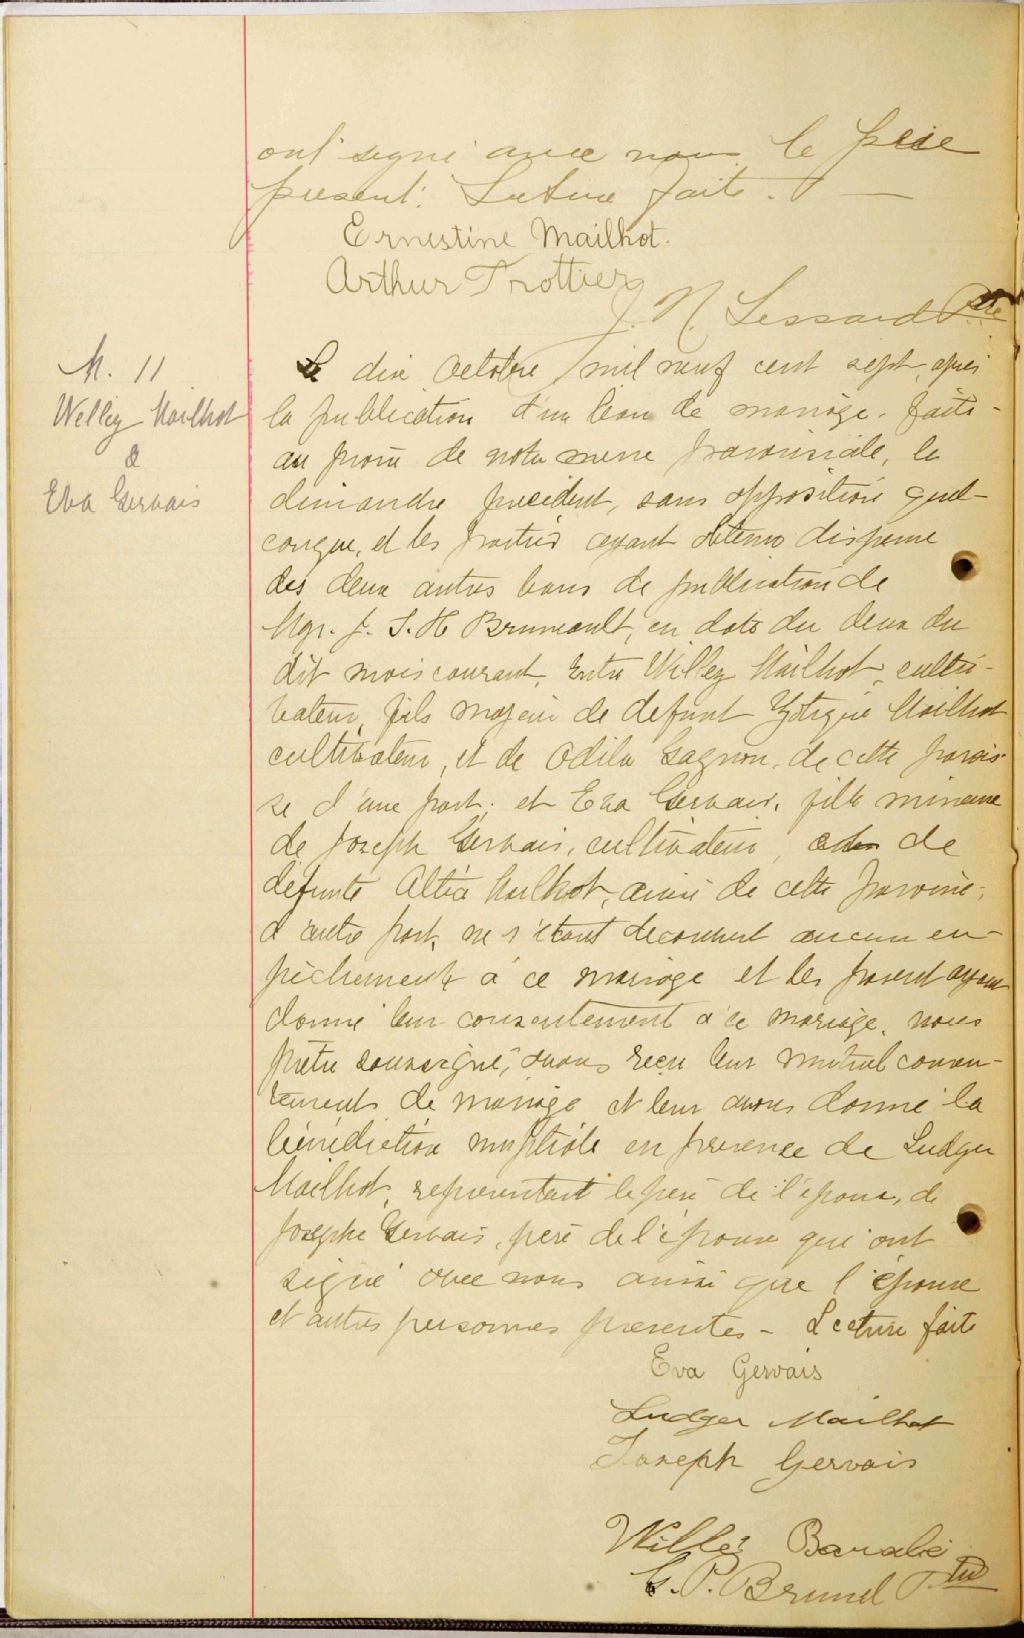 ont signé avec nous le père
présent. Lecture faite.
Ernestine Mailhot.
Arthur Trottier
J. N. Lessard Ptre
M. 11
Welley Mailhot
&
Eva Gervais
Le dix Octobre mil neuf cent sept, après
la publication d'un ban de mariage faite
au prône de notre messe paroissiale, le
dimanche précédent, sans opposition quel-
conque, et les parties ayant obtenu dispense
des deux autres bans de publication de
Mgr. J. S. H Bruneault, en date du deux du
dit mois courant, Entre Willey Mailhot, culti-
vateur, fils majeur de defunt Zotique Mailhot
cultivateur, et de Odila Gagnon, de cette parois-
se d'une part; et Eva Gervais, fille mineure
de Joseph Gervais, cultivateur, de
défunte Mailhot, aussi de cette paroisse,
d'autre part, ne s'étant découvert aucun em-
pêchement à ce mariage et les parent ayant
donné leur consentement à ce mariage, nous
prêtre soussigné, avons reçu leur mutuel consen-
tement de mariage et leur avons donné la
bénédiction nuptiale en présence de Ludger
Mailhot, représentant le père de l'époux, de
Joseph Gervais, père de l'épouse qui ont
signé avec nous ainsi que l'épouse
et autres personnes présentes - Lecture faite
Eva Gervais
Ludger Mailhot
Joseph Gervais
Willé Barabé
G. P. Brunel Ptre